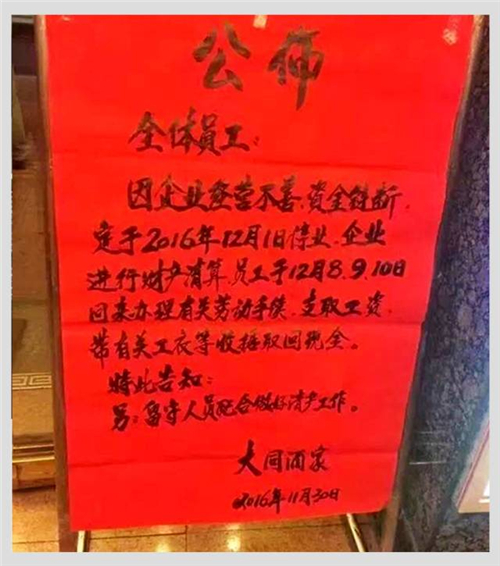 公佈
全体员工：
因企业经营不善，资金链断，
定于2016年12月1日停业，企业
进行财产清算，员工于12月8.9.10日
回来办理有关劳动手续，支取工资，
带有关工衣等收据取回现金。
特此告知：
另：留守人员配合做好清产工作。
大同酒家
2016年11月30日